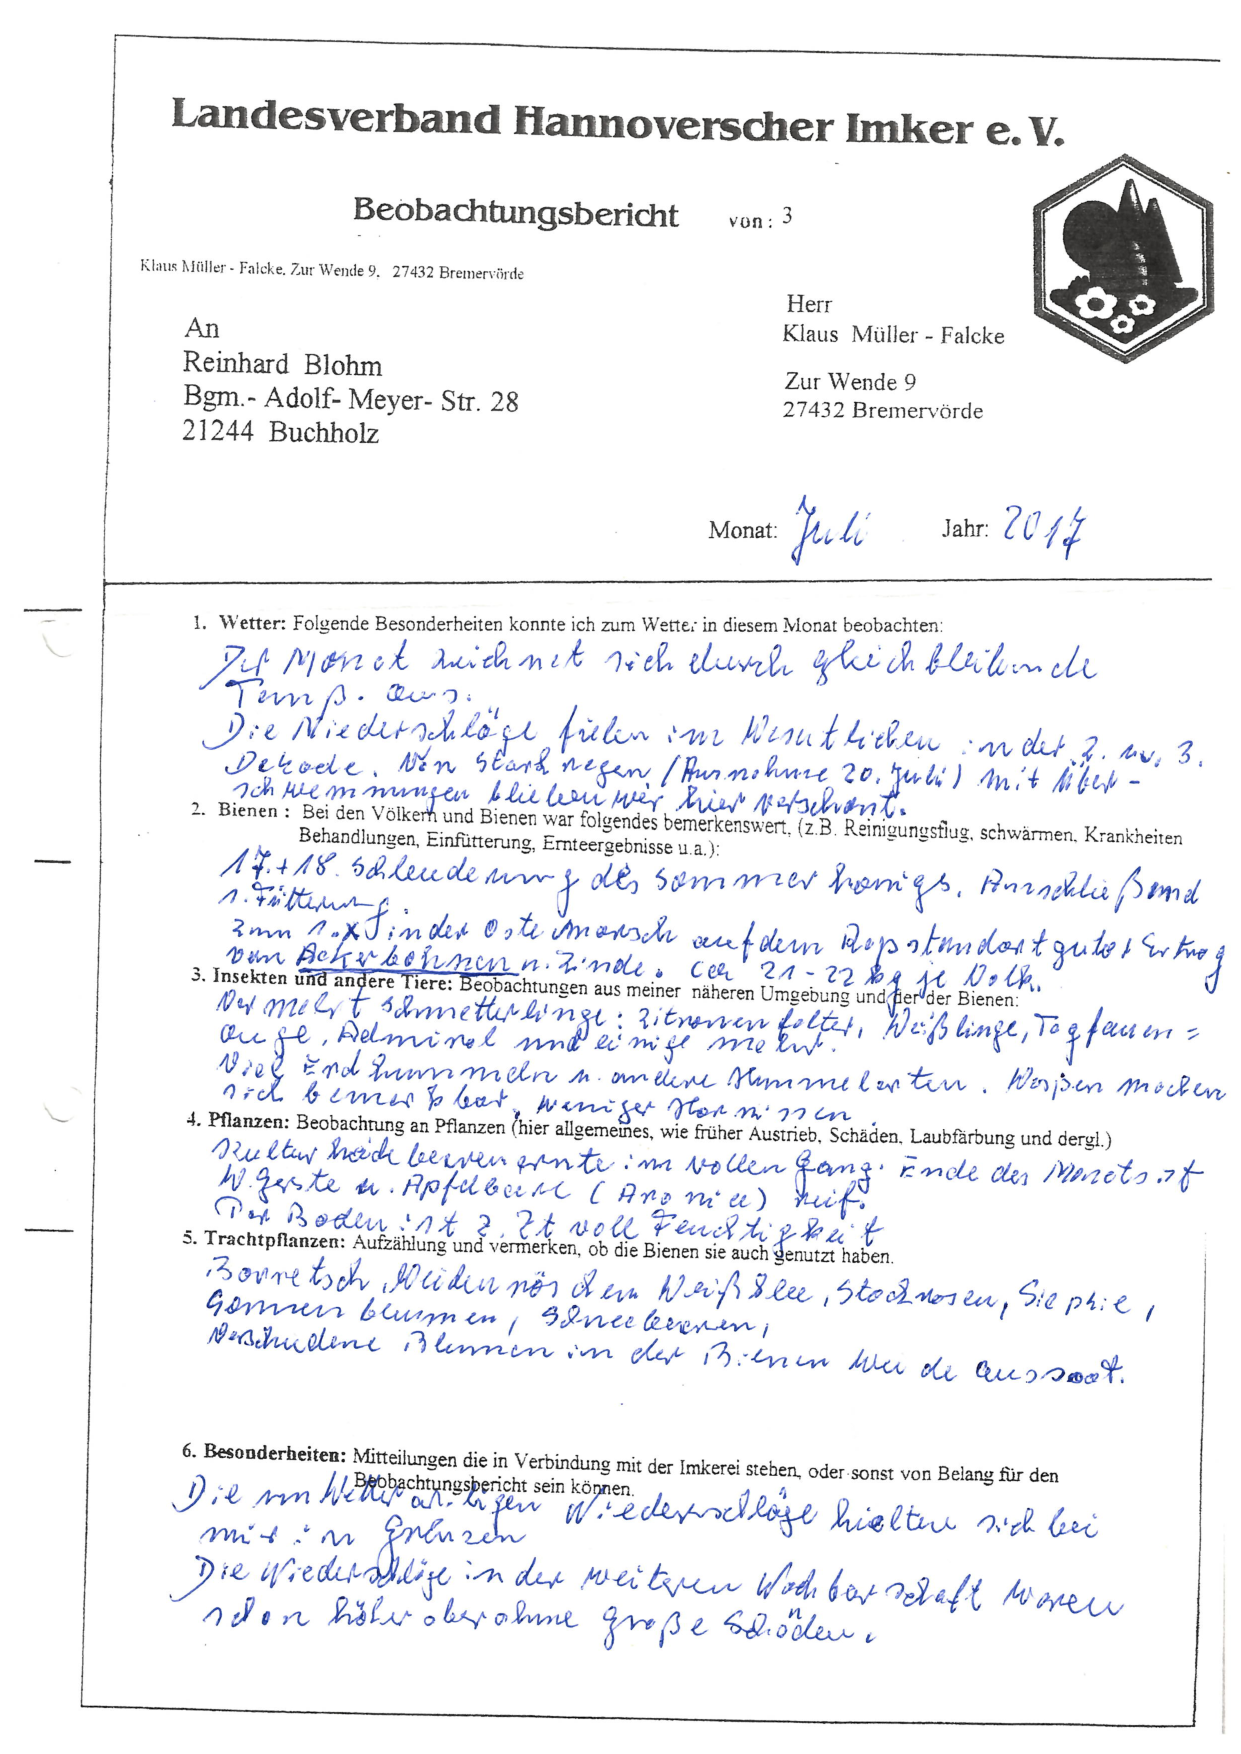 Landesverband Hannoverscher Imker e. V.
Beobachtungsbericht von: 3
Klaus Müller - Falcke. Zur Wende 9. 27432 Bremervörde
An
Reinhard Blohm
Bgm.- Adolf- Meyer- Str. 28
21244 Buchholz
Herr
Klaus Müller - Falcke
Zur Wende 9
27432 Bremervörde
Monat: Juli Jahr: 2017
1. Wetter: Folgende Besonderheiten konnte ich zum Wetter in diesem Monat beobachten:
Der Monat zeichnet sich durch gleichbleibende
Temp. aus.
Die Niederschläge fielen im Wesentlichen in der 2. u. 3.
Dekade. Von Starkregen (Ausnahme 20. Juli) mit Über-
schwemmungen blieben wir hier verschont.
2. Bienen : Bei den Völkern und Bienen war folgendes bemerkenswert, (z.B. Reinigungsflug, schwärmen, Krankheiten
Behandlungen, Einfütterung, Ernteergebnisse u.a.):
17.+18. Schleuderung des Sommerhonigs. Anschließend
1. Fütterung.
Zum 1. x in der Ostemarsch auf dem Rapsstandort guter Ertrag
von Ackerbohnen u. Linde. ca 21-22 kg je Volk.
3. Insekten und andere Tiere: Beobachtungen aus meiner näheren Umgebung und der der Bienen:
Vermehrt Schmetterlinge: Zitronenfalter, Weißlinge, Tagpfauen=
auge, Admiral und einige mehr.
Viel Erdhummeln u. andere Hummelarten. Wespen machen
sich bemerkbar, weniger Hornissen.
4. Pflanzen: Beobachtung an Pflanzen (hier allgemeines, wie früher Austrieb, Schäden, Laubfärbung und dergl.)
Kulturheidelbeerenernte im vollen Gang. Ende des Monats ist
W.gerste u. Apfelbeere (Aronia) reif.
Der Boden ist z. Zt voll Feuchtigkeit
5. Trachtpflanzen: Aufzählung und vermerken, ob die Bienen sie auch genutzt haben.
Borretsch, Weidenröschen Weißklee, Stockrosen, Silphie,
Sonnenblumen, Schneebeeren,
Verschiedene Blumen in der Bienenweide aussaat.
6. Besonderheiten: Mitteilungen die in Verbindung mit der Imkerei stehen, oder sonst von Belang für den
Beobachtungsbericht sein können.
Die unwetterartigen Niederschläge hielten sich bei
mir in Grenzen
Die Niederschläge in der weiteren Nachbarschaft waren
schon höher aber ohne große Schäden.